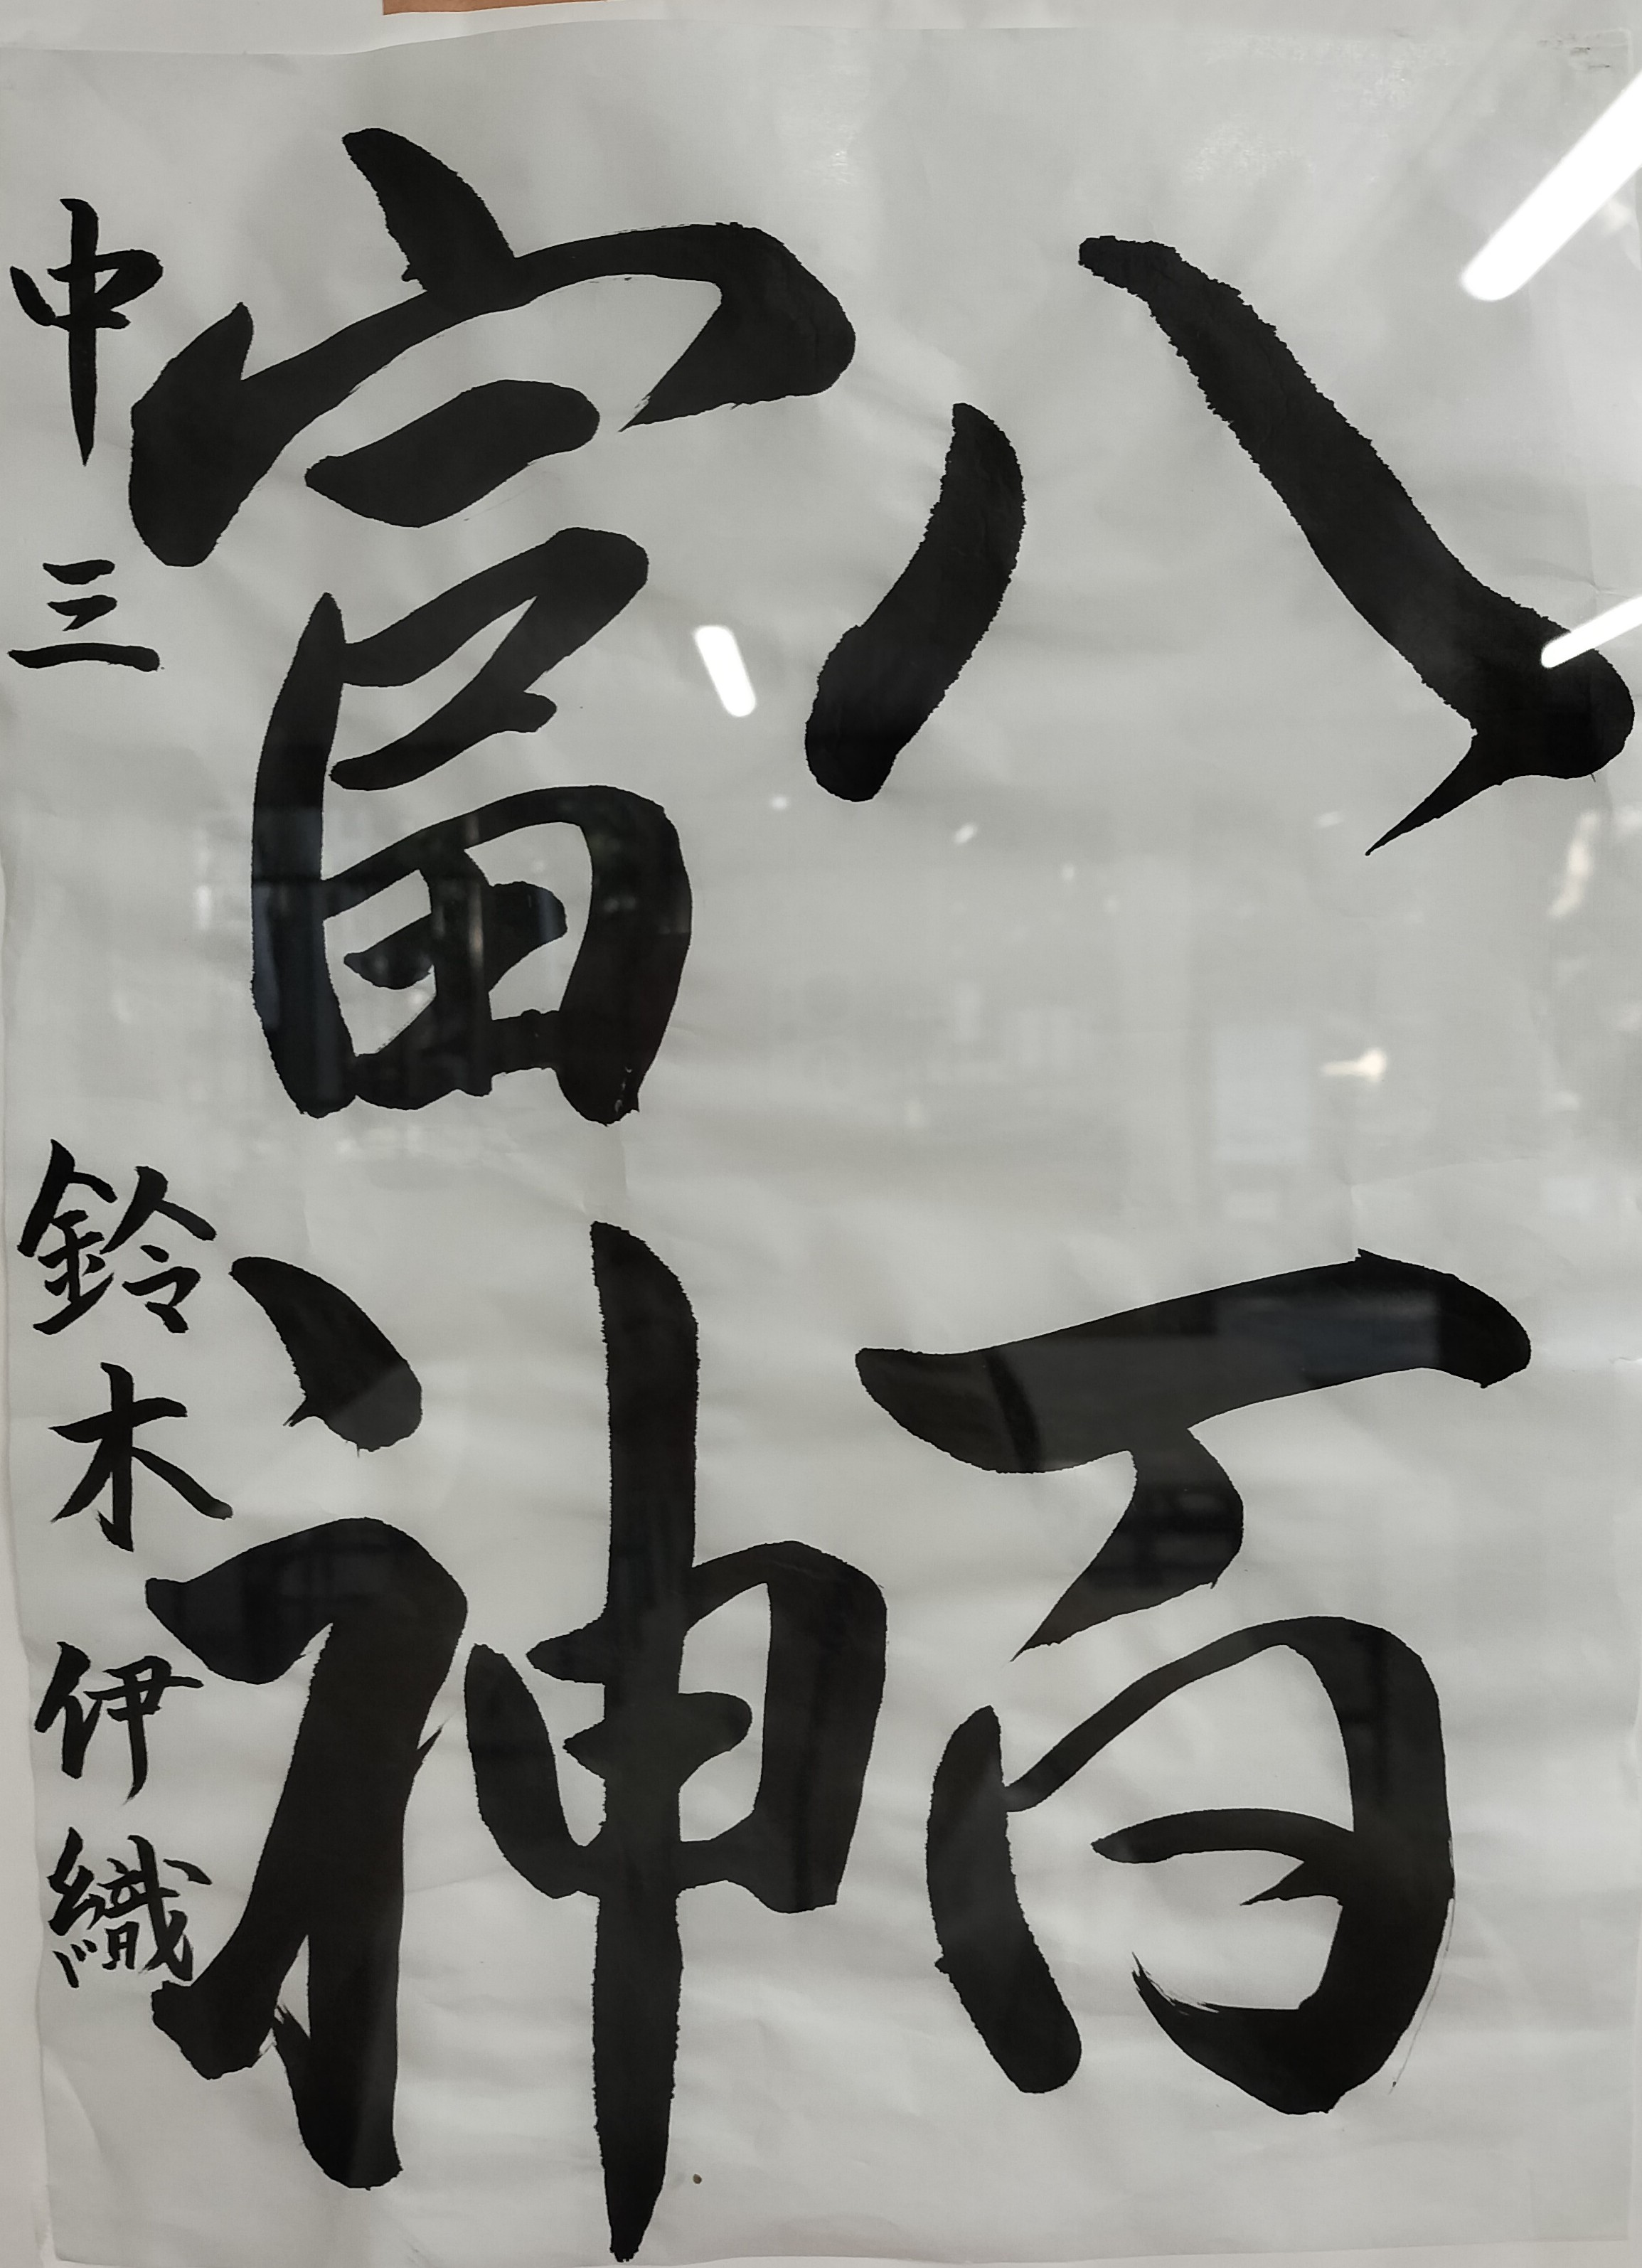 八百
富神
中三 鈴木伊織